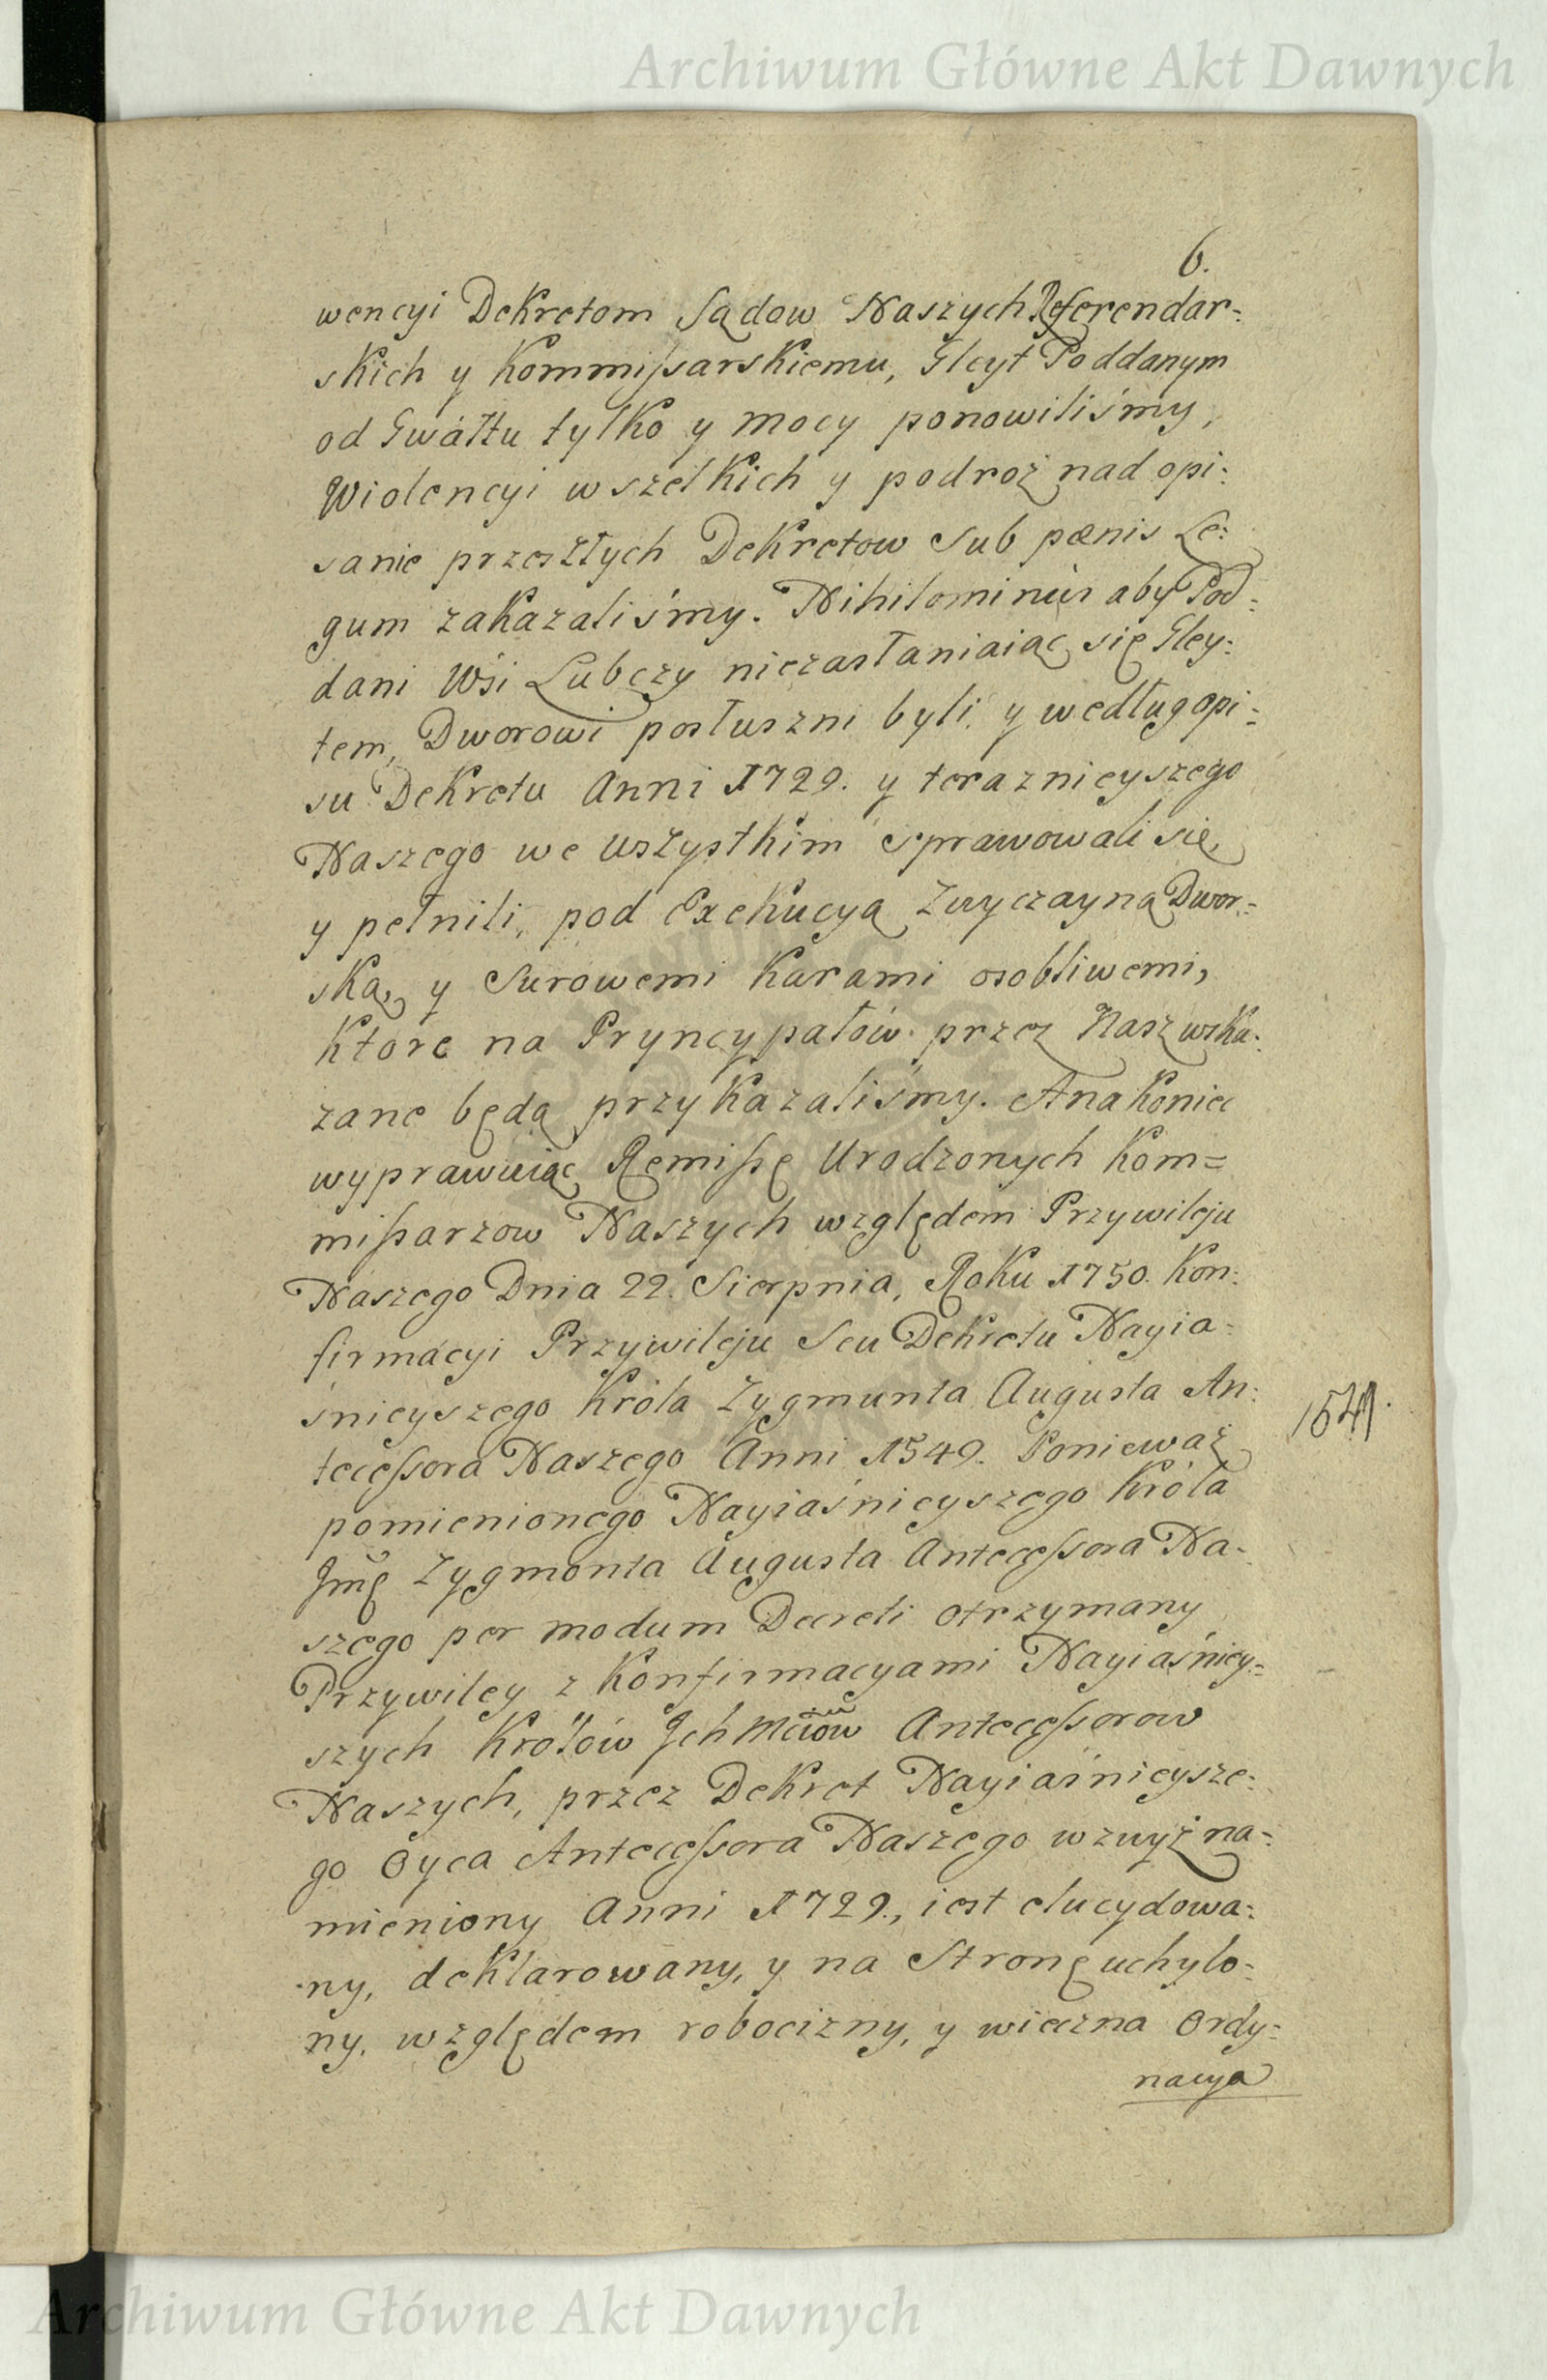 Archiwum Główne Akt Dawnych
6.
wencyi Dekretom Sądow Naszych Referendar-
skich y Kommissarskiemu, Gleyt Poddanym
od Gwałtu tylko y mocy ponowiliśmy,
Wiolencyi wszelkich y podroż nad opi-
sanie przeszłych Dekretow sub pænis Le-
gum zakazaliśmy. Nihilominus aby Pod-
dani Wsi Lubczy niezasłaniaiąc się Gley-
tem, Dworowi posłuszni byli y według opi-
su Dekretu Anni 1729. y teraznieyszego
Naszego we wszystkim sprawowali się,
y pełnili, pod Exekucyą Zwyczayną Dwor-
ską, y Surowemi Karami osobliwemi,
Ktore na Pryncypałów przez Nasz wska-
zane będą przykazaliśmy. A na Koniec
wyprawuiąc Remissę Urodzonych Kom=
missarzow Naszych względem Przywileju
Naszego Dnia 22. Sierpnia, Roku 1750. Kon-
firmacyi Przywileju Seu Dekretu Nayia-
śnieyszego Króla Zygmunta Augusta An-
tecessora Naszego Anni 1549. Ponieważ
1549.
pomienionego Nayiaśnieyszego Króla
Jmę Zygmonta Augusta Antecessora Na-
szego per modum Decreti otrzymany
Przywiley z Konfirmacyami Nayiaśniey-
szych Królów Jch Mciów Antecessorow
Naszych, przez Dekret Nayiaśnieysze-
go Oyca Antecessora Naszego wzwyż na-
mieniony Anni 1729., iest elucydowa-
ny, deklarowany, y na Stronę uchylo-
ny, względem robocizny, y wieczna Ordy-
nacya
Archiwum Główne Akt Dawnych